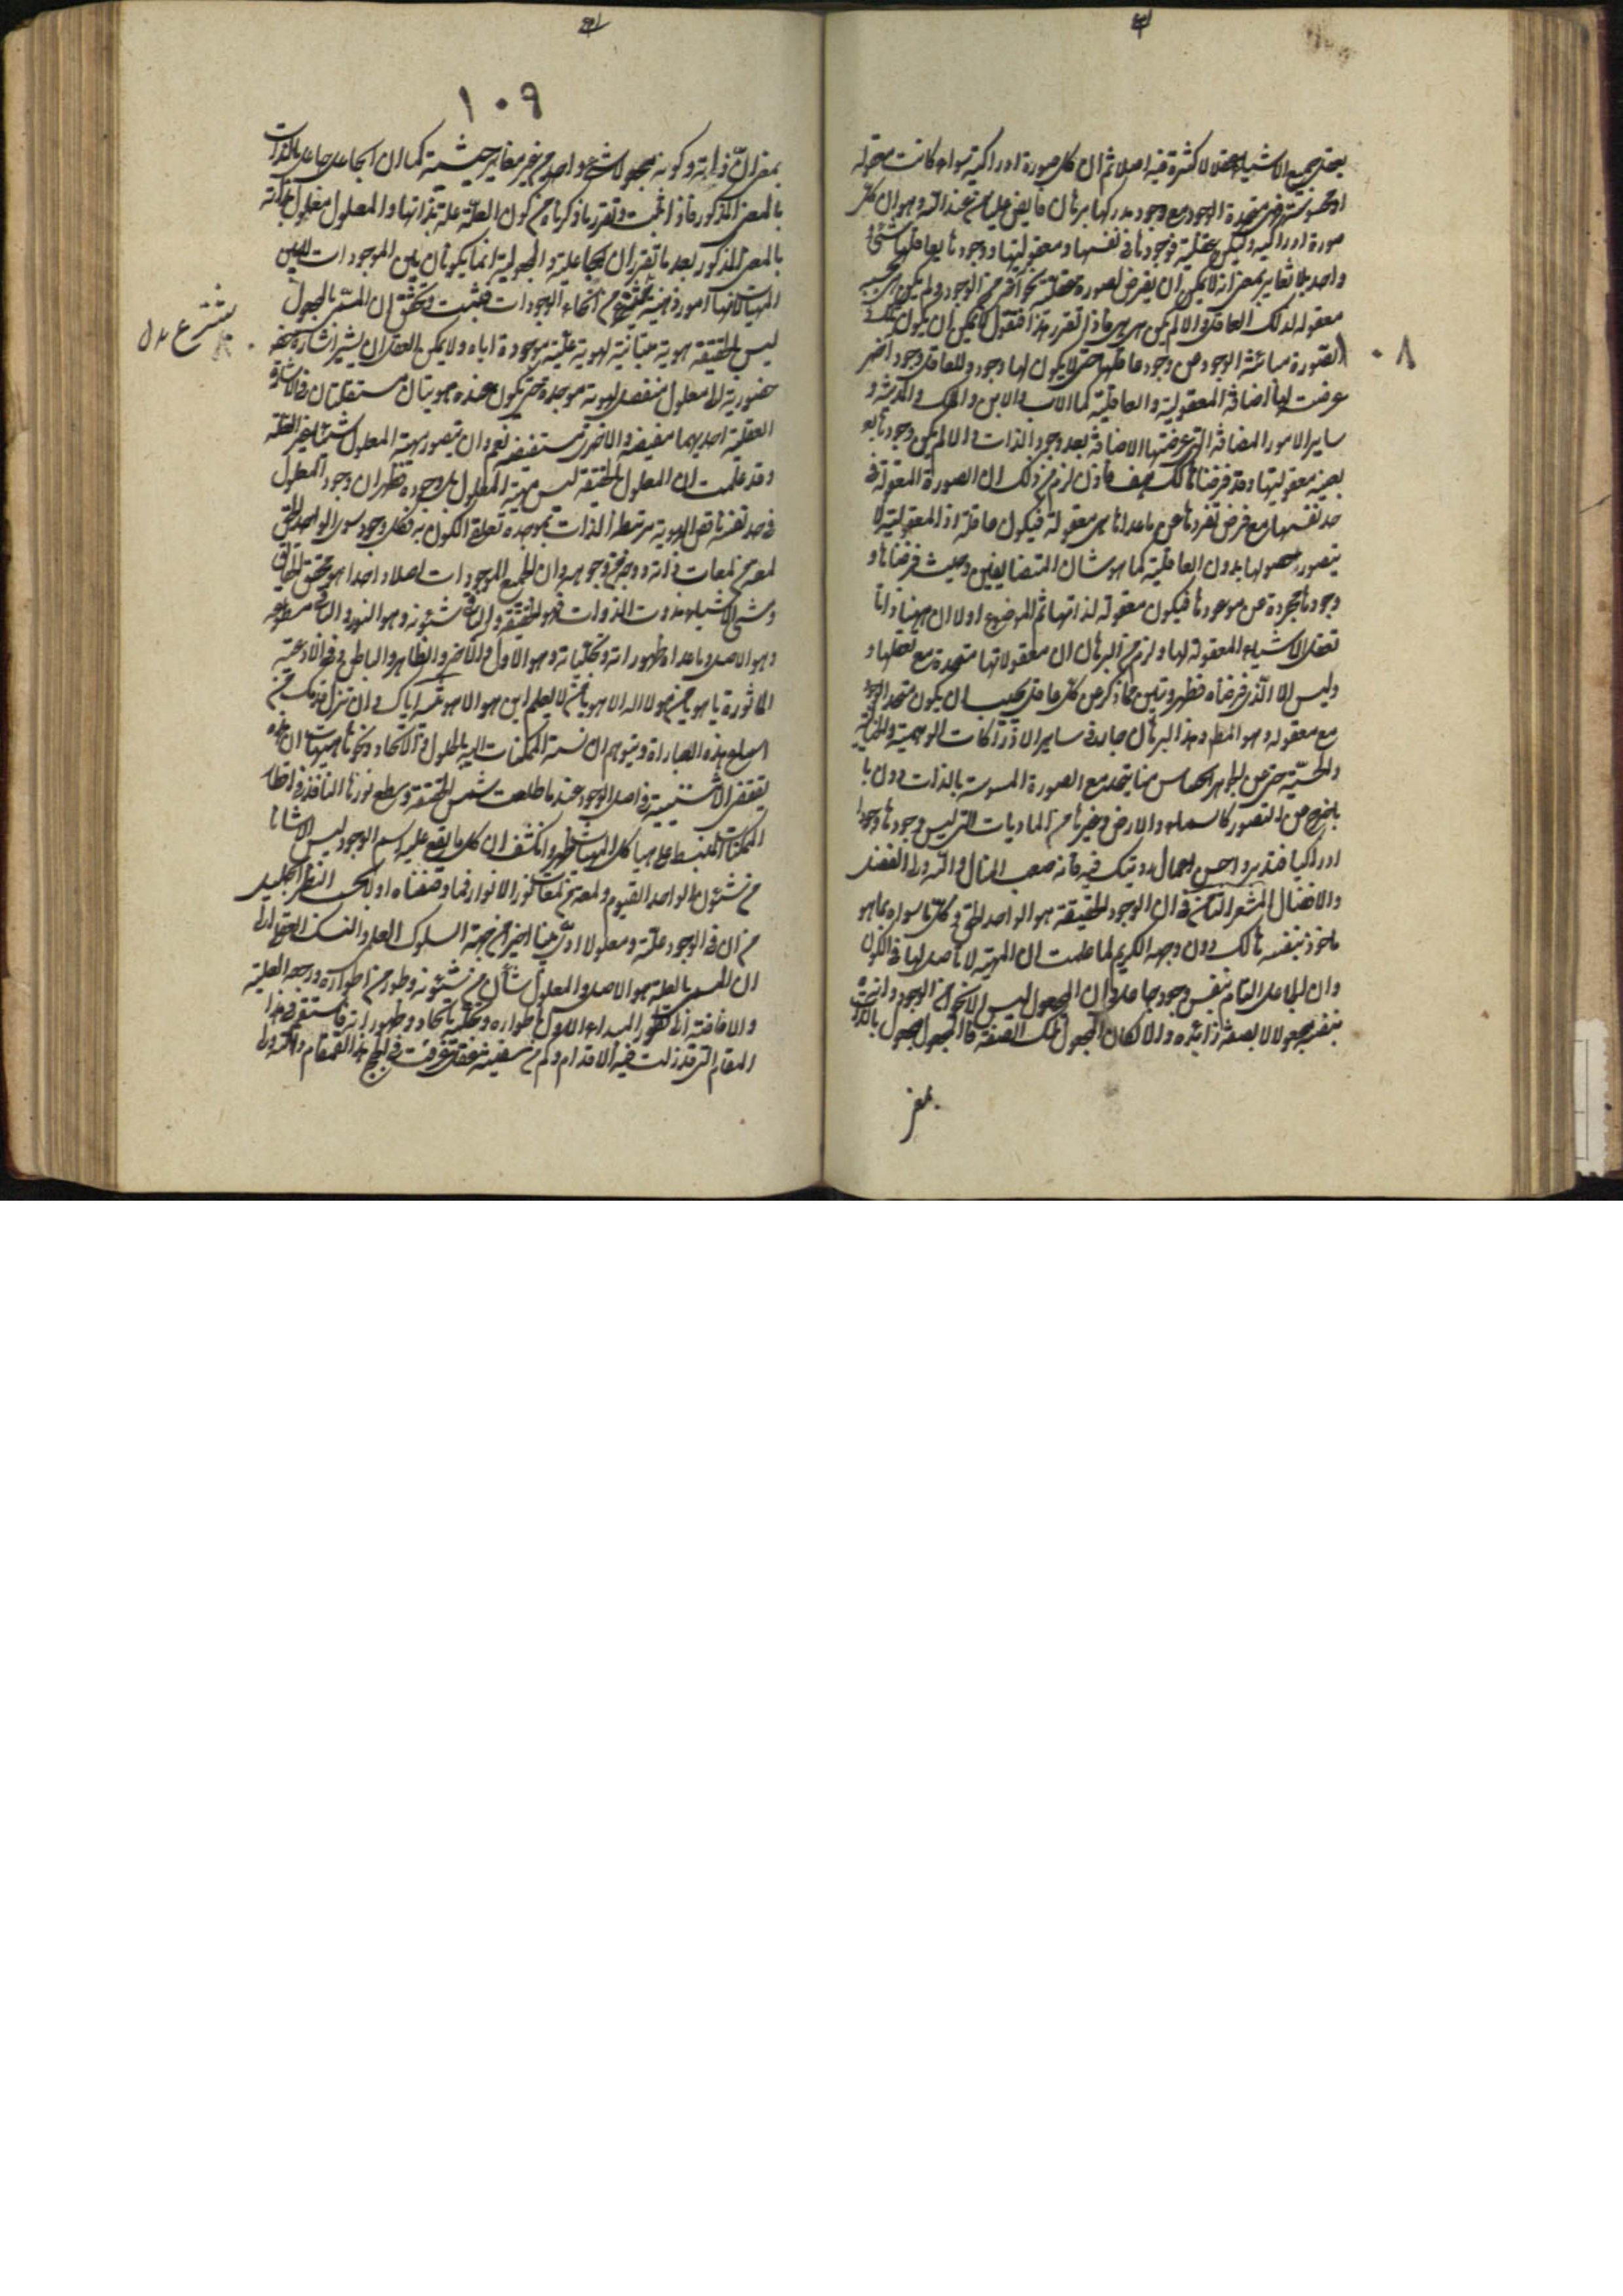 يعقل جميع الاشياء عقلا لا كثرة فيه اصلا ثم ان كل صورة ادراكية سواء كانت معقولة
او محسوسة فهى متحدة الوجود مع وجود مدركها برهان فايض علينا من عند الله وهو ان كل
صورة ادراكية وليكن عقلية فوجودها فى نفسها ومعقوليتها ووجودها لعاقلها شئ
واحد بلا تغاير بمعنى انه لا يمكن ان يفرض لصورة عقلية نحو آخر من الوجود لم يكن هى بحسبه
معقولة لذلك العاقل والا لم يكن هى هى فاذا تقرر هذا فنقول لا يمكن ان يكون تلك
الصورة مباينة الوجود عن وجود عاقلها حتى لا يكون لها وجود وللعاقل وجود آخر
عرضت لهما اضافة المعقولية والعاقلية كما للاب والابن والملك والمدينة و
ساير الامور المضافة التى عرضتها الاضافة بعد وجود الذات والا لم يكن وجودها
بعينه معقوليتها وقد فرضناها كذلك هف فاذن لزم من ذلك ان الصورة المعقولة فى
حد نفسها مع فرض تفردها عن ما عداها هى معقولة فيكون عاقلة اذ المعقولية لا
يتصور حصولها بدون العاقلية كما هو شان المتضايفين وحيث فرضناها و
وجودها مجردة عن ما عداها فيكون معقولة لذاتها ثم الموضوع اولا ان ههنا ذاتا
تعقل الاشياء المعقولة لها ولزم من البرهان ان معقولاتها متحدة مع تعقلها و
وليس الا الذى فرضناه فظهر وتبين مما ذكر عن كل عاقل يجب ان يكون متحد الوجود
مع معقوله وهو المط وهذا البرهان جار فى ساير الادراكات الوهمية والخيالية
والحسية حتى عن الجوهر الحساس منا يتحد مع الصورة المحسوسة بالذات دون ما
خرج عن التصور كالسماء والارض وغيرها من الماديات التى ليس وجودها وجودا
ادراكيا فتدبر واحسن اعمال رويتك فيه فانه صعب المنال والله ولى الفضل
والافضال المشعر الثامن فى ان الوجود بالحقيقة هو الواحد الحق وكل ما سواه بما هو
ماخوذ بنفسه هالك دون وجهه الكريم لما علمت ان الماهية لا تاصل لها فى الكون
وان الجاعل التام بنفس وجوده جاعل وان المجعول ليس الا نحوا من الوجود وانه
بنفسه مجعول لا بصفة زائدة والا لكان المجعول تلك الصفة فالمجعول مجعول بالذات
بمعنى
١٠٨
١٠٩
بمعنى ان ذاته وكونه مجعولا شئ واحد من غير تغاير حيثية كما ان الجاعل جاعل بالذات
بالمعنى المذكور فاذا ثبت وتقرر ما ذكرناه من كون العلة علة بذاتها والمعلول معلولا بذاته
بالمعنى المذكور بعد ما تقرر ان الجاعلية والمجعولية انما يكونان بين الموجودات لا بين
المهيات لانها امور ذهنية تنتزع من انحاء الوجودات فثبت وتحقق ان المسمى بالمجعول
ليس بالحقيقة هوية مباينة لهوية علته موجدة اياه ولا يمكن للعقل ان يشير اشارة
حضورية الى معلول منفصل لهوية موجده حتى يكون عنده هويتان مستقلتان فى الاشارة
العقلية احديهما مفيضة والاخرى مستفيضة نعم وان يتصور مهية المعلول شيئا غير العلة
وقد علمت ان المعلول بالحقيقة ليس مهية المعلول بل وجوده فظهر ان وجود المعلول
فى حد نفسه ناقص الهوية مرتبط الذات بموجده تعلق الكون به فكل وجود سوى الواحد الحق
لمعة من لمعات ذاته ووجه من وجوهه وان لجميع الموجودات اصلا واحدا هو محقق الحقائق
ومشئ الاشياء ومذوت الذوات فهو الحقيقة والباقى شئونه وهو النور والباقى سطوعه
وهو الاصل وما عداه ظهوراته وتجلياته وهو الاول والآخر والظاهر والباطن وفى الادعية
الماثورة يا هو يا من هو لا اله الا هو يا من لا يعلم اين هو الا هو تنبيه اياك وان تزل قدمك من
استماع هذه العبارات وتتوهم ان نسبة الممكنات اليه بالحلول والاتحاد ونحوهما هيهات ان هذه
تقتضى الاثنينية فى اصل الوجود عند ما طلعت شمس الحقيقة وسطع نورها النافذ فى اقطار
الممكنات المنبسط على هياكل المهيات ظهر وانكشف ان كل ما يقع عليه اسم الوجود ليس الا شانا
من شئون الواحد القيوم ولمعة من لمعات نور الانوار فما وضعناه اولا بحسب النظر الجليل
من ان فى الوجود علة ومعلولا ادى بنا اخيرا من جهة السلوك العلمى والنسك العقلى الى
ان المسمى بالعلة هو الاصل والمعلول شان من شئونه وطور من اطواره ورجع العلية
والافاضة الى تطور المبدء الاول باطواره وتجليه بانحاء ظهوراته فاستقم فى هذا
المقام الذى قد زلت فيه الاقدام وكم من سفينة عقل غرقت فى لجج هذا القمقام والله ولى